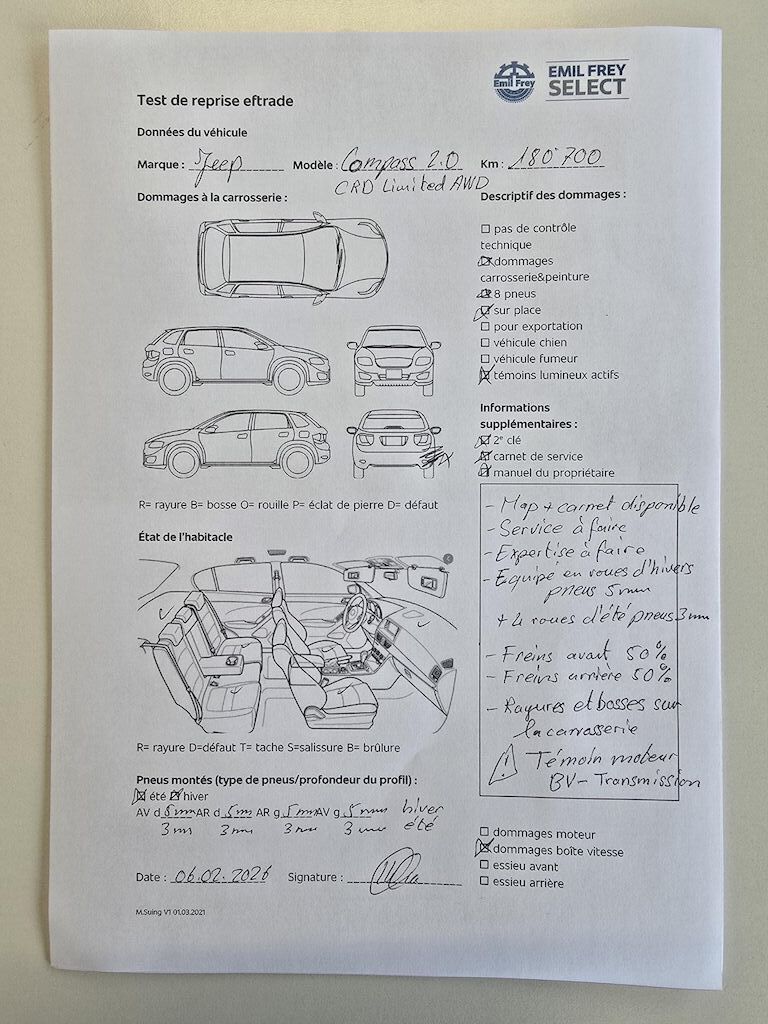 Emil Frey
EMIL FREY
SELECT
Test de reprise eftrade
Données du véhicule
Marque : Jeep Modèle : Compass 2.0 Km : 180'700
CRD Limited AWD
Dommages à la carrosserie :
Descriptif des dommages :
pas de contrôle
technique
dommages
carrosserie&peinture
8 pneus
sur place
pour exportation
véhicule chien
véhicule fumeur
témoins lumineux actifs
Informations
supplémentaires :
2e clé
carnet de service
manuel du propriétaire
R= rayure B= bosse O= rouille P= éclat de pierre D= défaut
État de l'habitacle
R= rayure D=défaut T= tache S=salissure B= brûlure
- Map + carnet disponible
- Service à faire
- Expertise à faire
- Equipé en roues d'hivers
pneus 5mm
+ 4 roues d'été pneus 3mm
- Freins avant 50%
- Freins arrière 50%
- Rayures et bosses sur
la carrosserie
! Témoin moteur
BV - Transmission
Pneus montés (type de pneus/profondeur du profil) :
été hiver
AV d 5mm AR d 5mm AR g 5mm AV g 5mm hiver
3mm 3mm 3mm 3mm été
dommages moteur
dommages boîte vitesse
essieu avant
essieu arrière
Date : 06.02.2026 Signature :
M.Suing V1 01.03.2021